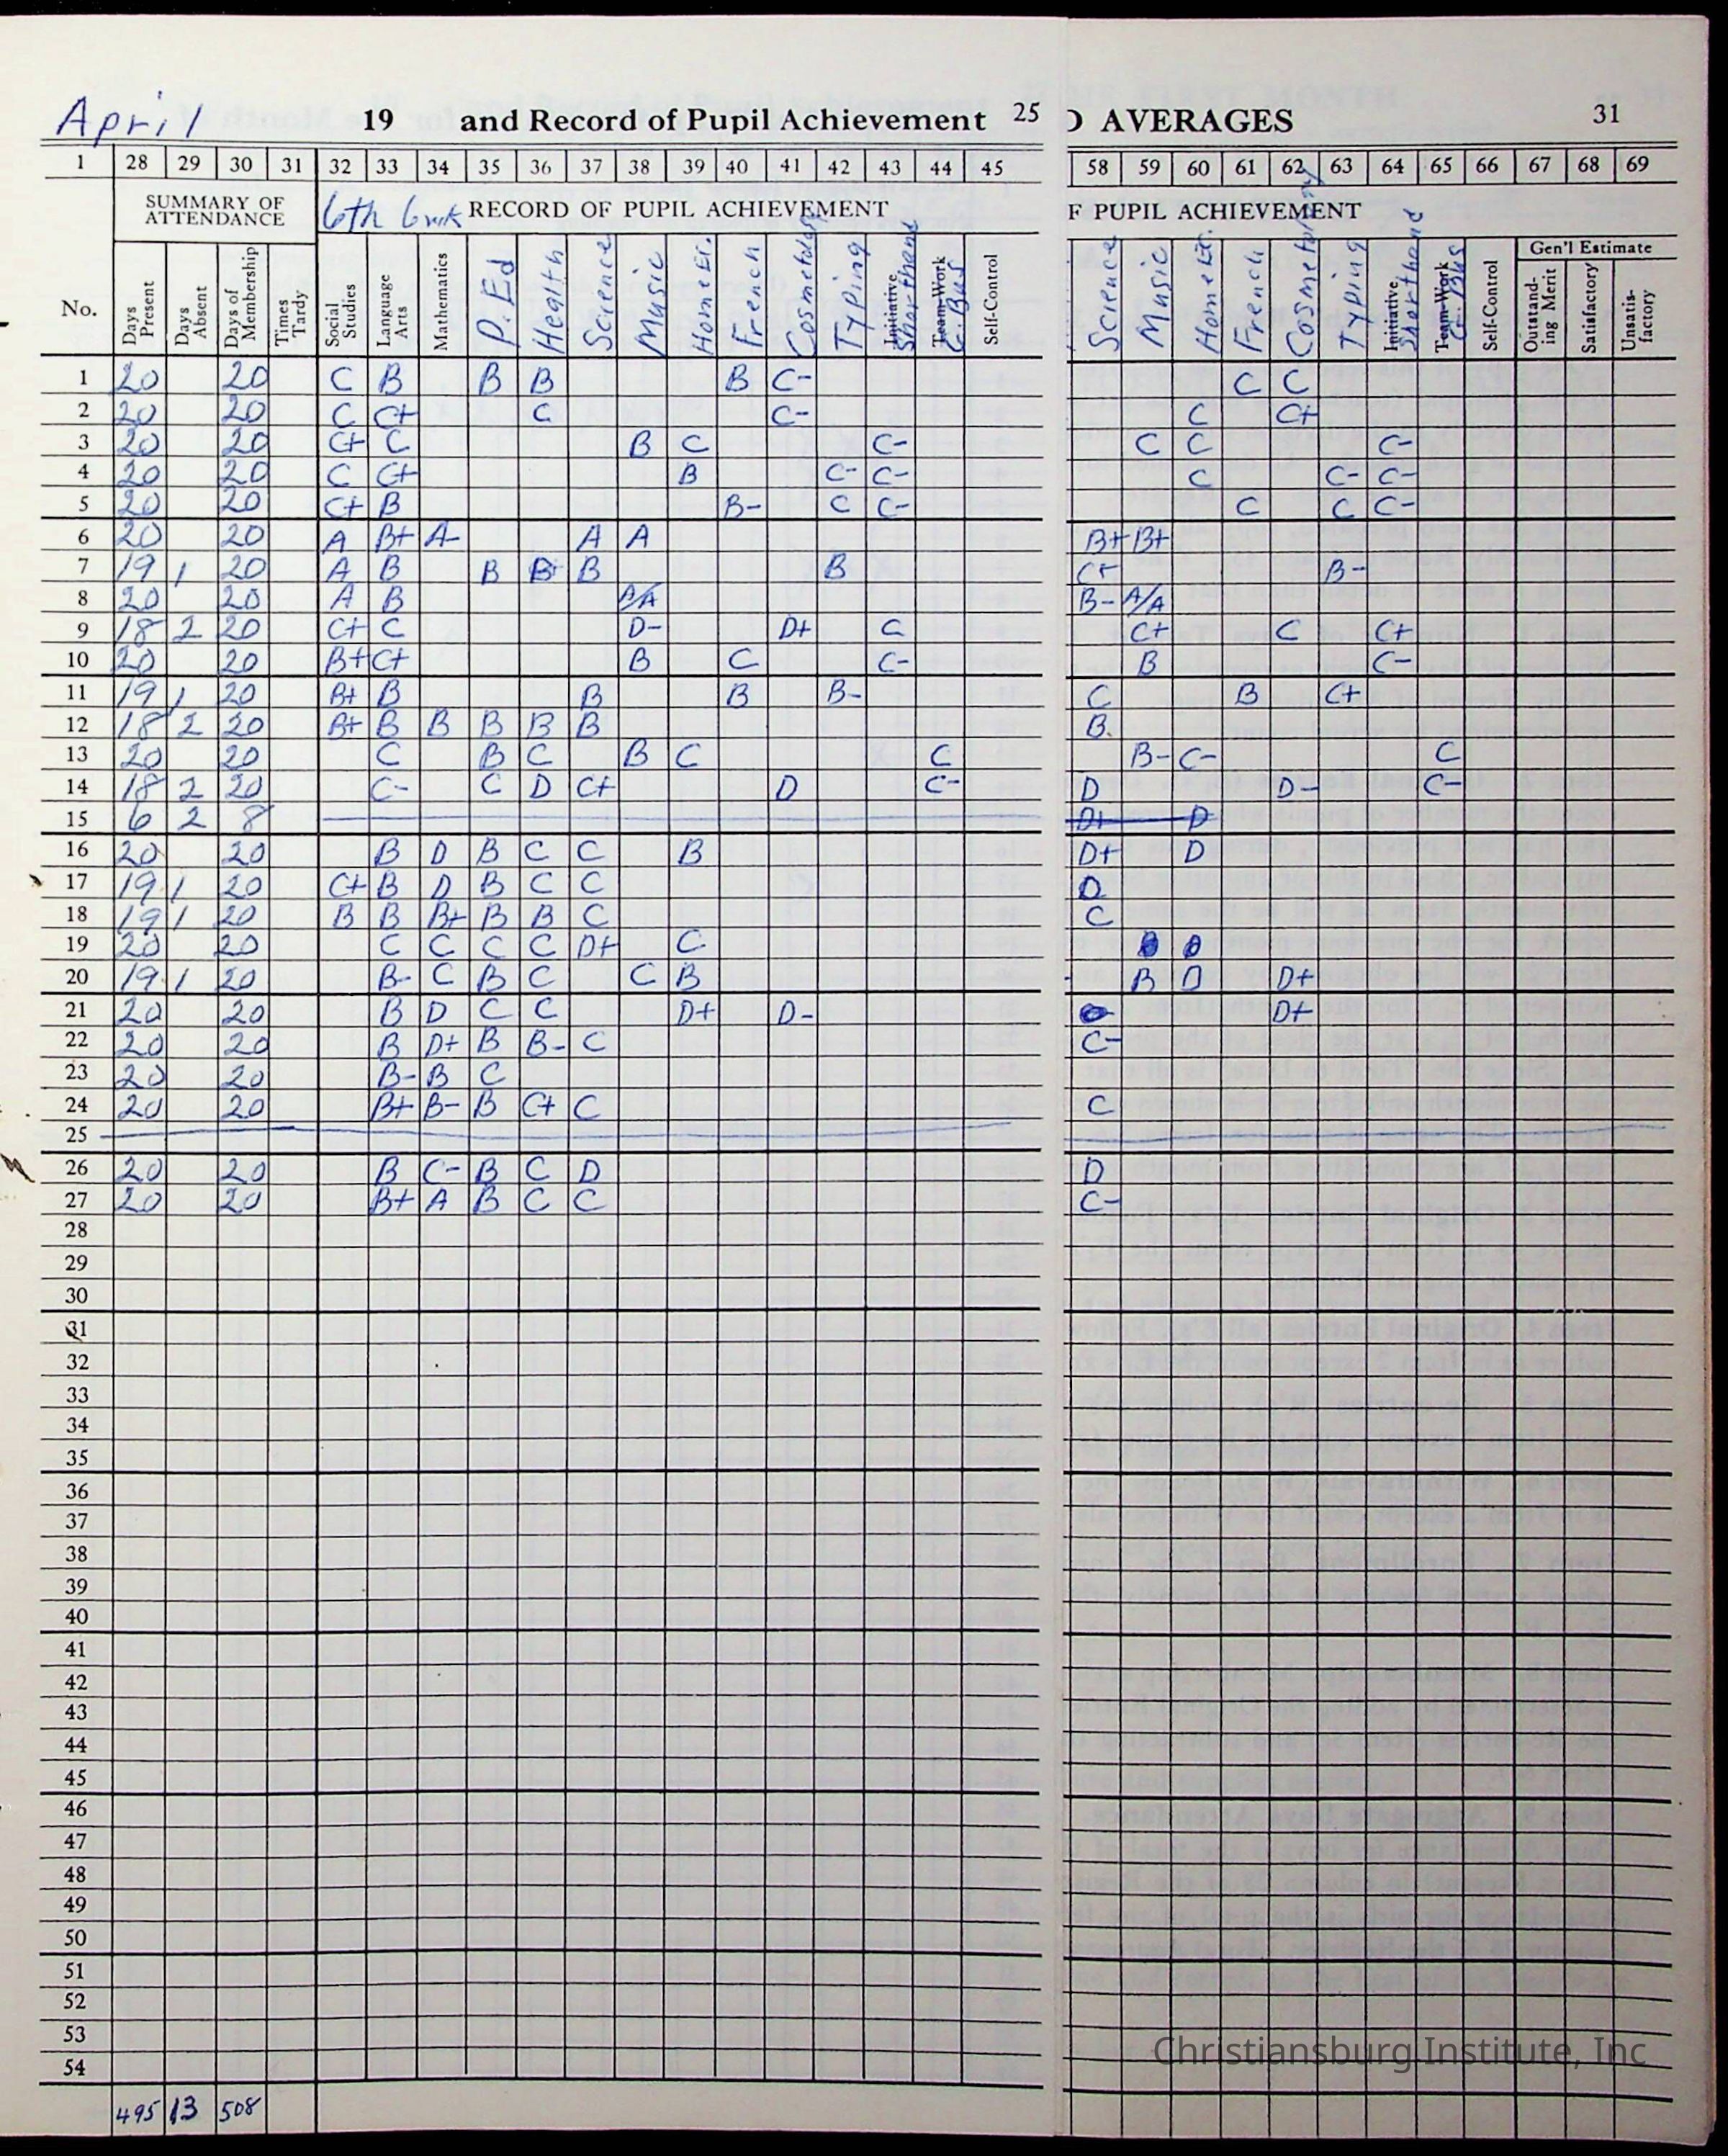 April 19 and Record of Pupil Achievement 25
D AVERAGES 31
1 28 29 30 31 32 33 34 35 36 37 38 39 40 41 42 43 44 45
58 59 60 61 62 63 64 65 66 67 68 69
SUMMARY OF ATTENDANCE 6th 6wk RECORD OF PUPIL ACHIEVEMENT
F PUPIL ACHIEVEMENT
Gen'l Estimate
No. Days Present Days Absent Days of Membership Times Tardy Social Studies Language Arts Mathematics P. Ed Health Science Music Home Ec. French Cosmetology Typing Initiative Shorthand Team-Work G. Bus Self-Control
Science Music Home Ec. French Cosmetology Typing Initiative Shorthand Team-Work G. Bus Self-Control Outstand-ing Merit Satisfactory Unsatis-factory
1 20 20 C B B B B C- C C
2 20 20 C C+ C C- C C+
3 20 20 C+ C B C C- C C C-
4 20 20 C C+ B C- C- C C- C-
5 20 20 C+ B B- C C- C C C-
6 20 20 A B+ A- A A B+ B+
7 19 1 20 A B B B+ B B B-
8 20 20 A B A/A B- A/A
9 18 2 20 C+ C D- D+ C C+ C C+
10 20 20 B+ C+ B C C- B C-
11 19 1 20 B+ B B B B- C B C+
12 18 2 20 B+ B B B B B B
13 20 20 C B C B C C B- C- C
14 18 2 20 C- C D C+ D C- D D- C-
15 6 2 8 D+ D
16 20 20 B D B C C B D+ D
17 19 1 20 C+ B D B C C D
18 19 1 20 B B B+ B B C C
19 20 20 C C C C D+ C
20 19 1 20 B- C B C C B B D D+
21 20 20 B D C C D+ D- D+
22 20 20 B D+ B B- C C-
23 20 20 B- B C
24 20 20 B+ B- B C+ C C
25
26 20 20 B C- B C D D
27 20 20 B+ A B C C C-
28
29
30
31
32
33
34
35
36
37
38
39
40
41
42
43
44
45
46
47
48
49
50
51
52
53
54
495 13 508
Christiansburg Institute, Inc